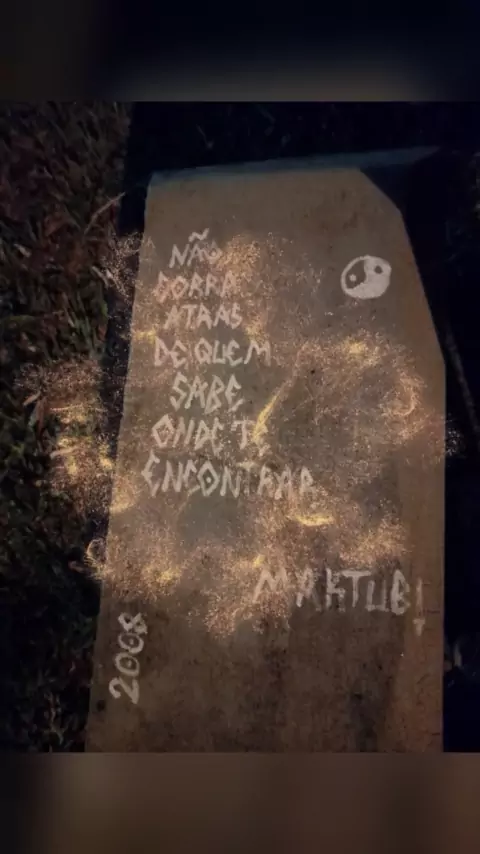 NÃO
CORRA
ATRAS
DE QUEM
SABE
ONDE TE
ENCONTRAR
MAKTUB!
2008